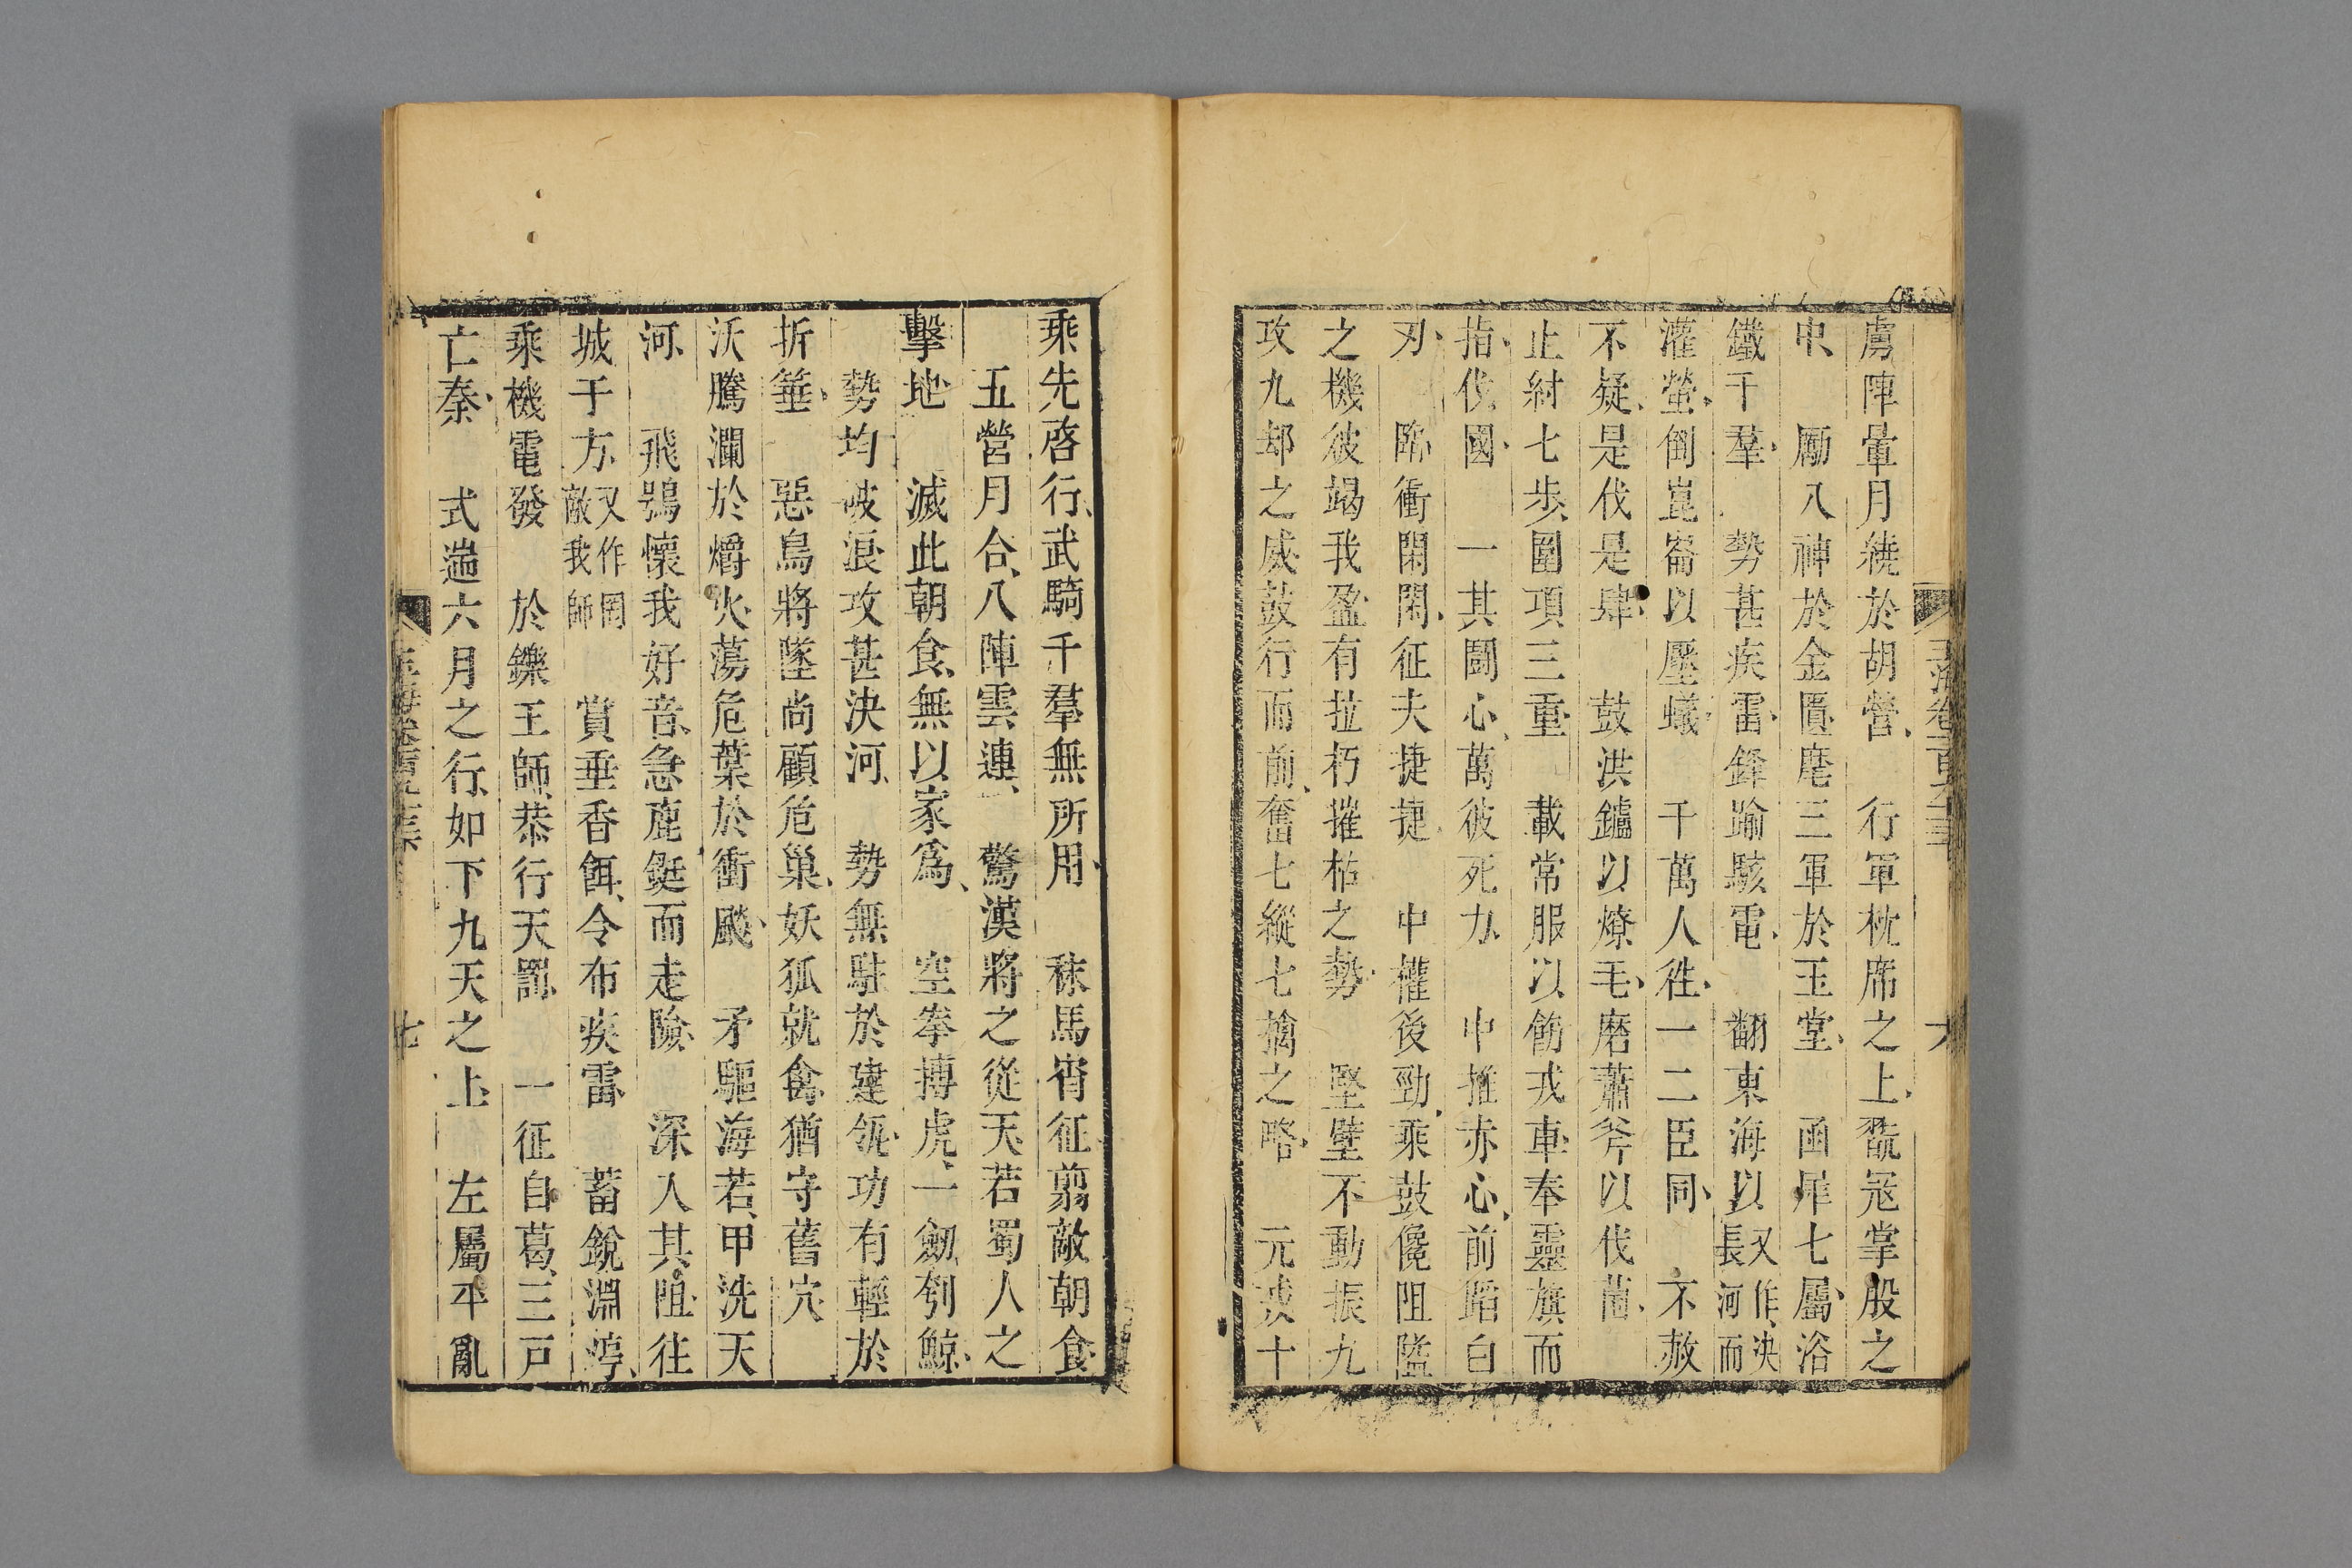 虜陣暈月繞於胡營　行軍枕席之上翫冦掌股之
中　勵八神於金匱麾三軍於玉堂　函犀七屬浴
鐵千羣　勢甚疾雷鋒踰駭電　翻東海以又作決長河而
灌螢倒崑崙以壓蟻　千萬人徃一二臣同　不赦
不疑是伐是肆　鼓洪鑪以燎毛磨蕭斧以伐菌
止紂七步圍項三重　載常服以飭戎車奉靈旗而
指伐國　一其鬪心萬彼死力　中推赤心前蹈白
刃　臨衝閑閑征夫捷捷　中權後勁乘鼓儳阻隘
之機彼竭我盈有拉朽摧枯之勢　堅壁不動振九
攻九却之威鼓行而前奮七縱七擒之略　元戎十
乘先啓行武騎千羣無所用　秣馬宵征翦敵朝食
五營月合八陣雲連　驚漢將之從天若蜀人之
擊地　滅此朝食無以家爲　空拳搏虎一劒刳鯨
勢均破浪攻甚決河　勢無駐於建瓴功有輕於
折箠　惡鳥將墜尚顧危巢妖狐就禽猶守舊穴
沃騰瀾於爝火蕩危葉於衝飈　矛驅海若甲洗天
河　飛鴞懷我好音急鹿鋌而走險　深入其阻往
城于方又作罔敵我師　賞垂香餌令布疾雷　蓄銳淵渟
乘機電發　於鑠王師恭行天罰　一征自葛三戸
亡秦　式遄六月之行如下九天之上　左屬平亂
七